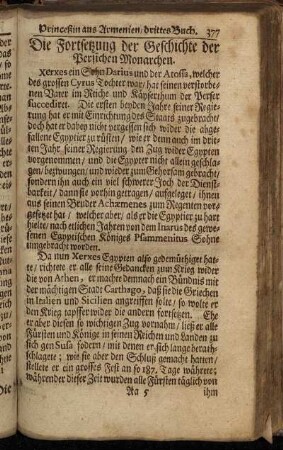 Princeßin aus Armenien, drittes Buch. 377
Die Fortsetzung der Geschichte der
Persischen Monarchen.
Xerxes ein Sohn Darius und der Atossa, welcher
des grossen Cyrus Tochter war/ hat seinen verstorbe-
nen Vater im Reiche und Käyserthum der Perser
succediret. Die ersten beyden Jahre seiner Regie-
rung hat er mit Einrichtung des Staats zugebracht/
doch hat er dabey nicht vergessen sich wider die abge-
fallene Egyptier zu rüsten/ wie er denn auch im drit-
ten Jahr seiner Regierung den Zug wider Egypten
vorgenommen/ und die Egypter nicht allein geschla-
gen/ bezwungen/ und wieder zum Gehorsam gebracht/
sondern ihn auch ein viel schwerer Joch der Dienst-
barkeit/ dann sie vorhin getragen/ aufgeleget/ ihnen
aus seinen Bruder Achæmenes zum Regenten vor-
gesetzet hat/ welcher aber/ als er die Egyptier zu hart
hielte/ nach etlichen Jahren von dem Inarus des gewe-
senen Egyptischen Königes Psammenitus Sohne
umgebracht worden.
Da nun Xerxes Egypten also gedemüthiget hat-
te/ richtete er alle seine Gedancken zum Krieg wider
die von Athen, er machet demnach ein Bündnis mit
der mächtigen Stadt Carthago, daß sie die Griechen
in Italien und Sicilien angreiffen solte/ so wolte er
den Krieg tapffer wider die andern fortsetzen. Ehe
er aber diesen so wichtigen Zug vornahm/ ließ er alle
Fürsten und Könige in seinen Reichen und Landen zu
sich gen Susa fodern/ mit denen er sich lange berath-
schlagete; wie sie aber den Schluß gemacht hatten/
stellete er ein grosses Fest an so 187. Tage währete;
währender dieser Zeit wurden alle Fürsten täglich von
Aa 5 ihm